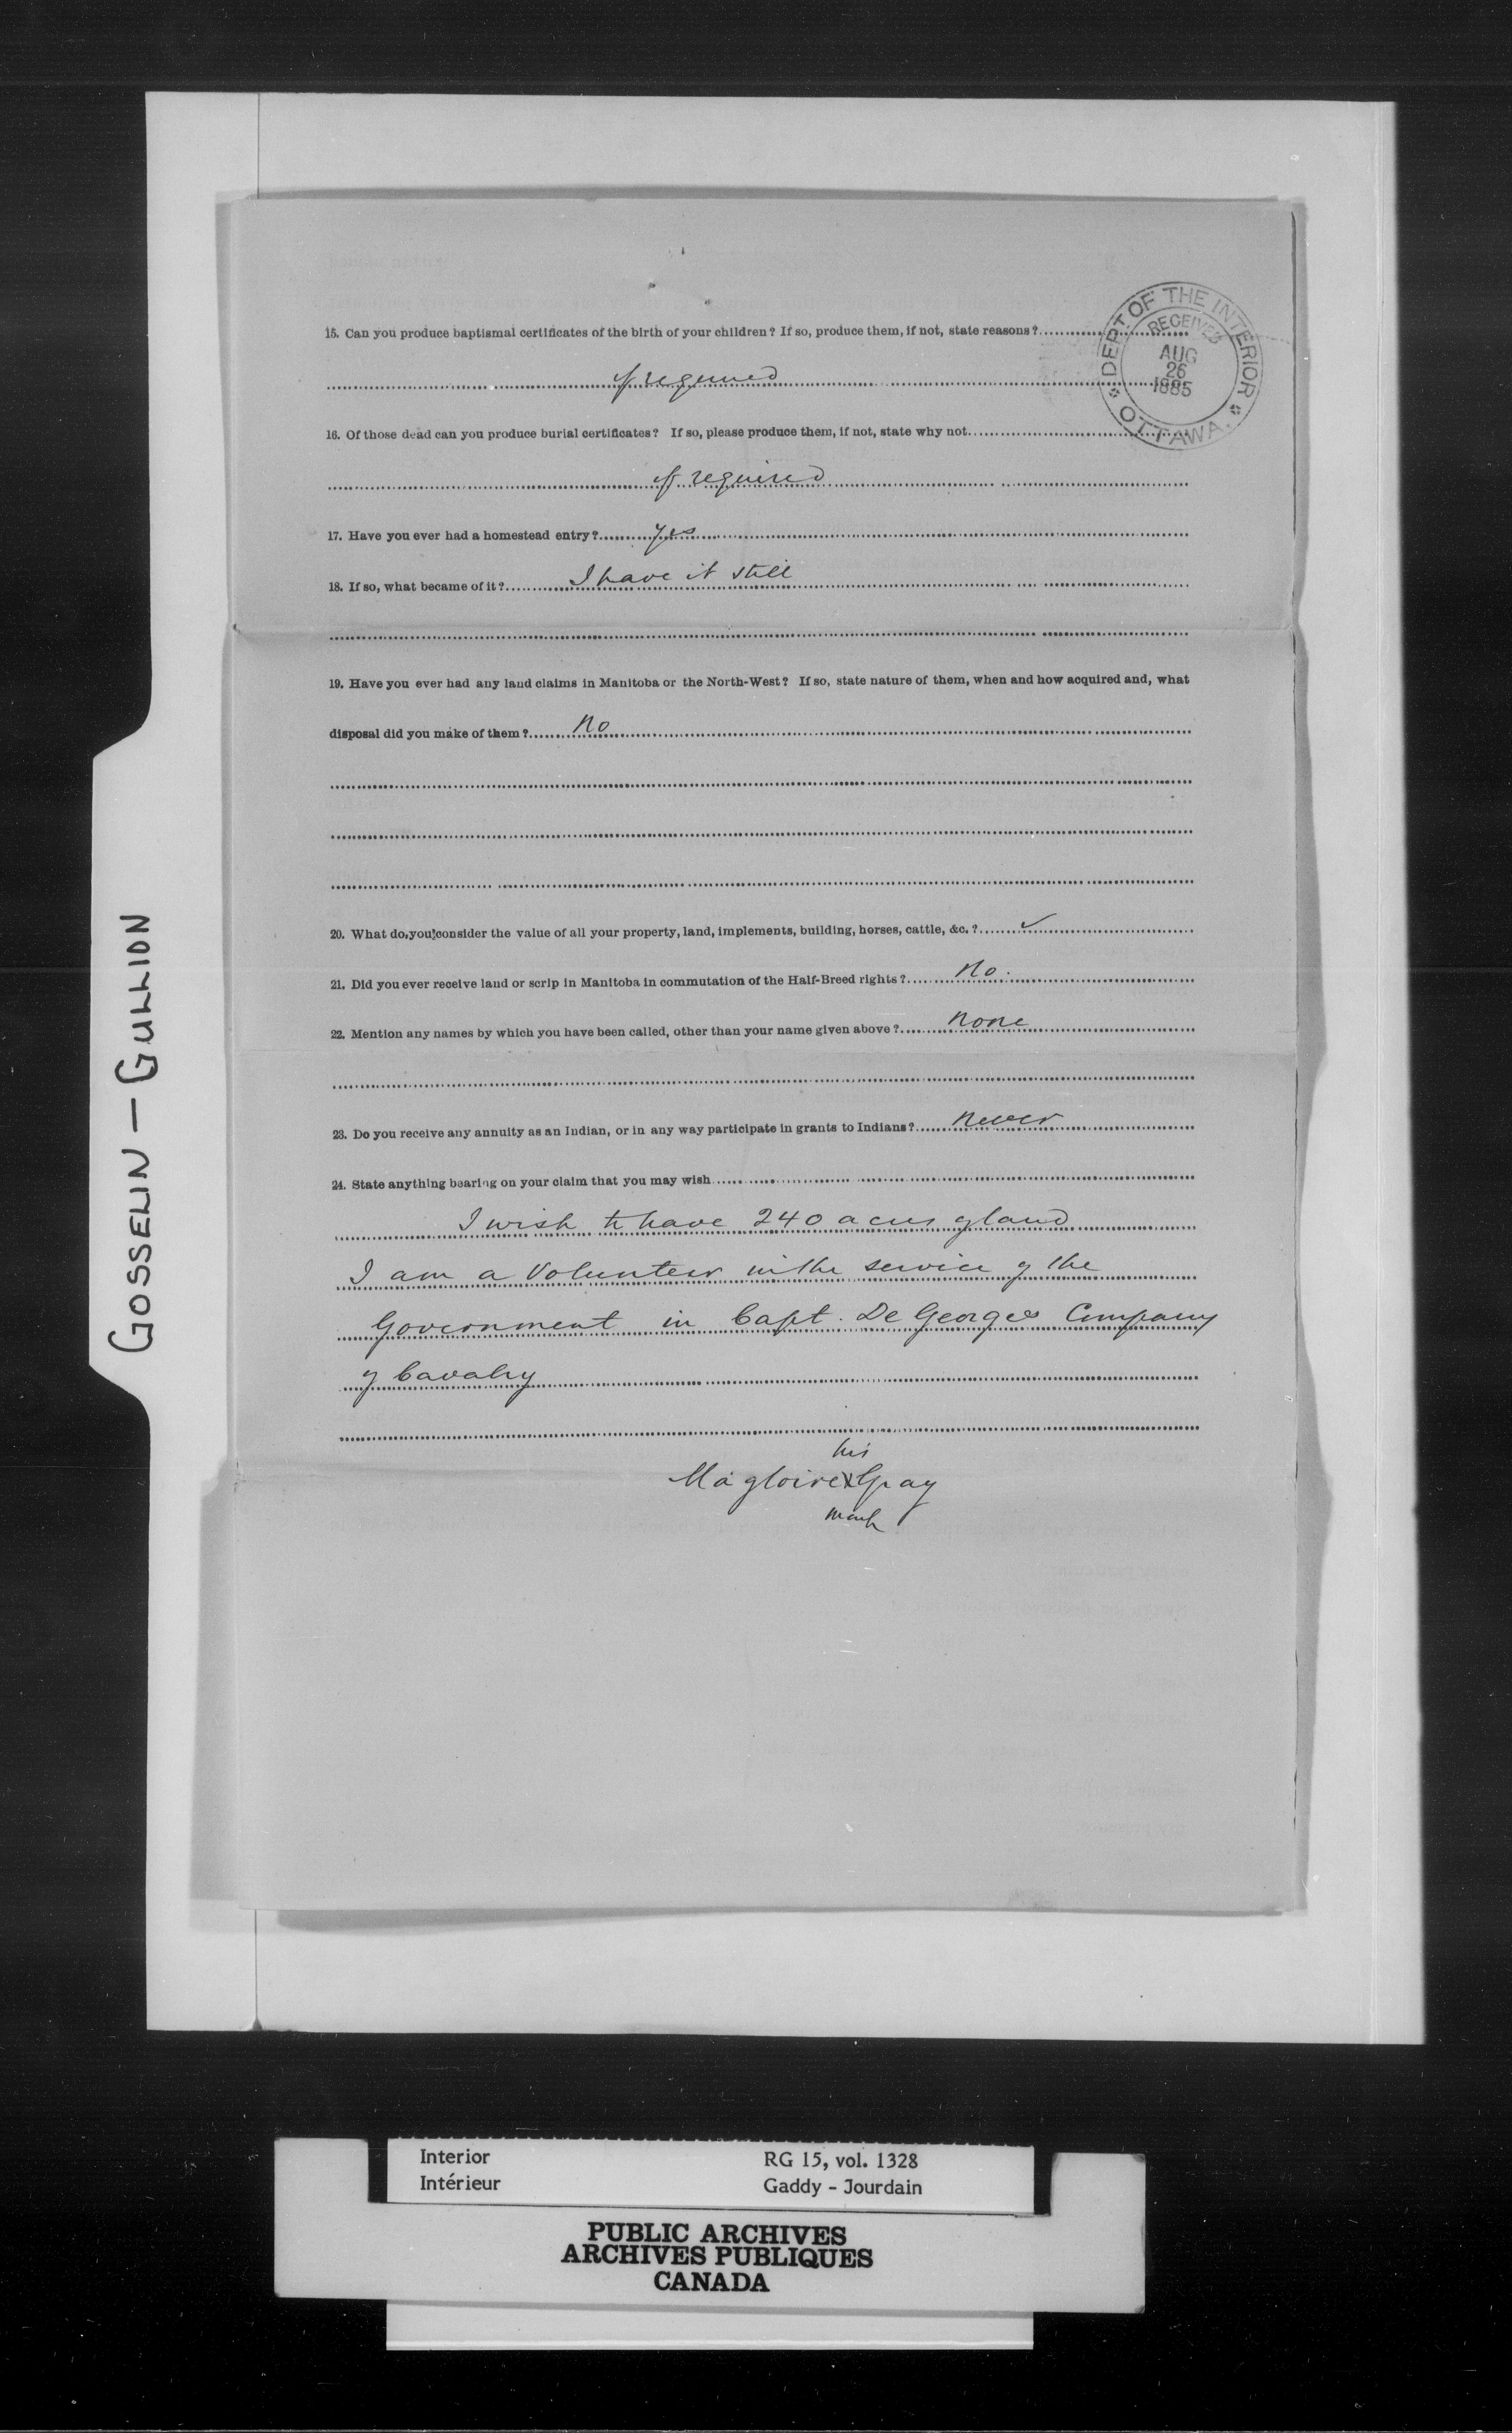 15. Can you produce baptismal certificates of the birth of your children? If so, produce them, if not, state reasons?
if required
16. Of those dead can you produce burial certificates? If so, please produce them, if not, state why not
if required
17. Have you ever had a homestead entry? yes
18. If so, what became of it? I have it still
19. Have you ever had any land claims in Manitoba or the North-West? If so, state nature of them, when and how acquired and, what
disposal did you make of them? No
20. What do you consider the value of all your property, land, implements, building, horses, cattle, &c. ? ✓
21. Did you ever receive land or scrip in Manitoba in commutation of the Half-Breed rights? No.
22. Mention any names by which you have been called, other than your name given above? None
23. Do you receive any annuity as an Indian, or in any way participate in grants to Indians? Never
24. State anything bearing on your claim that you may wish
I wish to have 240 acres of land
I am a Volunteer in the service of the
Government in Capt. De Georges Company
of Cavalry
his
Magloire X Gray
mark
DEPT OF THE INTERIOR
RECEIVED
AUG
26
1885
OTTAWA.
GOSSELIN — GULLION
Interior RG 15, vol. 1328
Intérieur Gaddy - Jourdain
PUBLIC ARCHIVES
ARCHIVES PUBLIQUES
CANADA